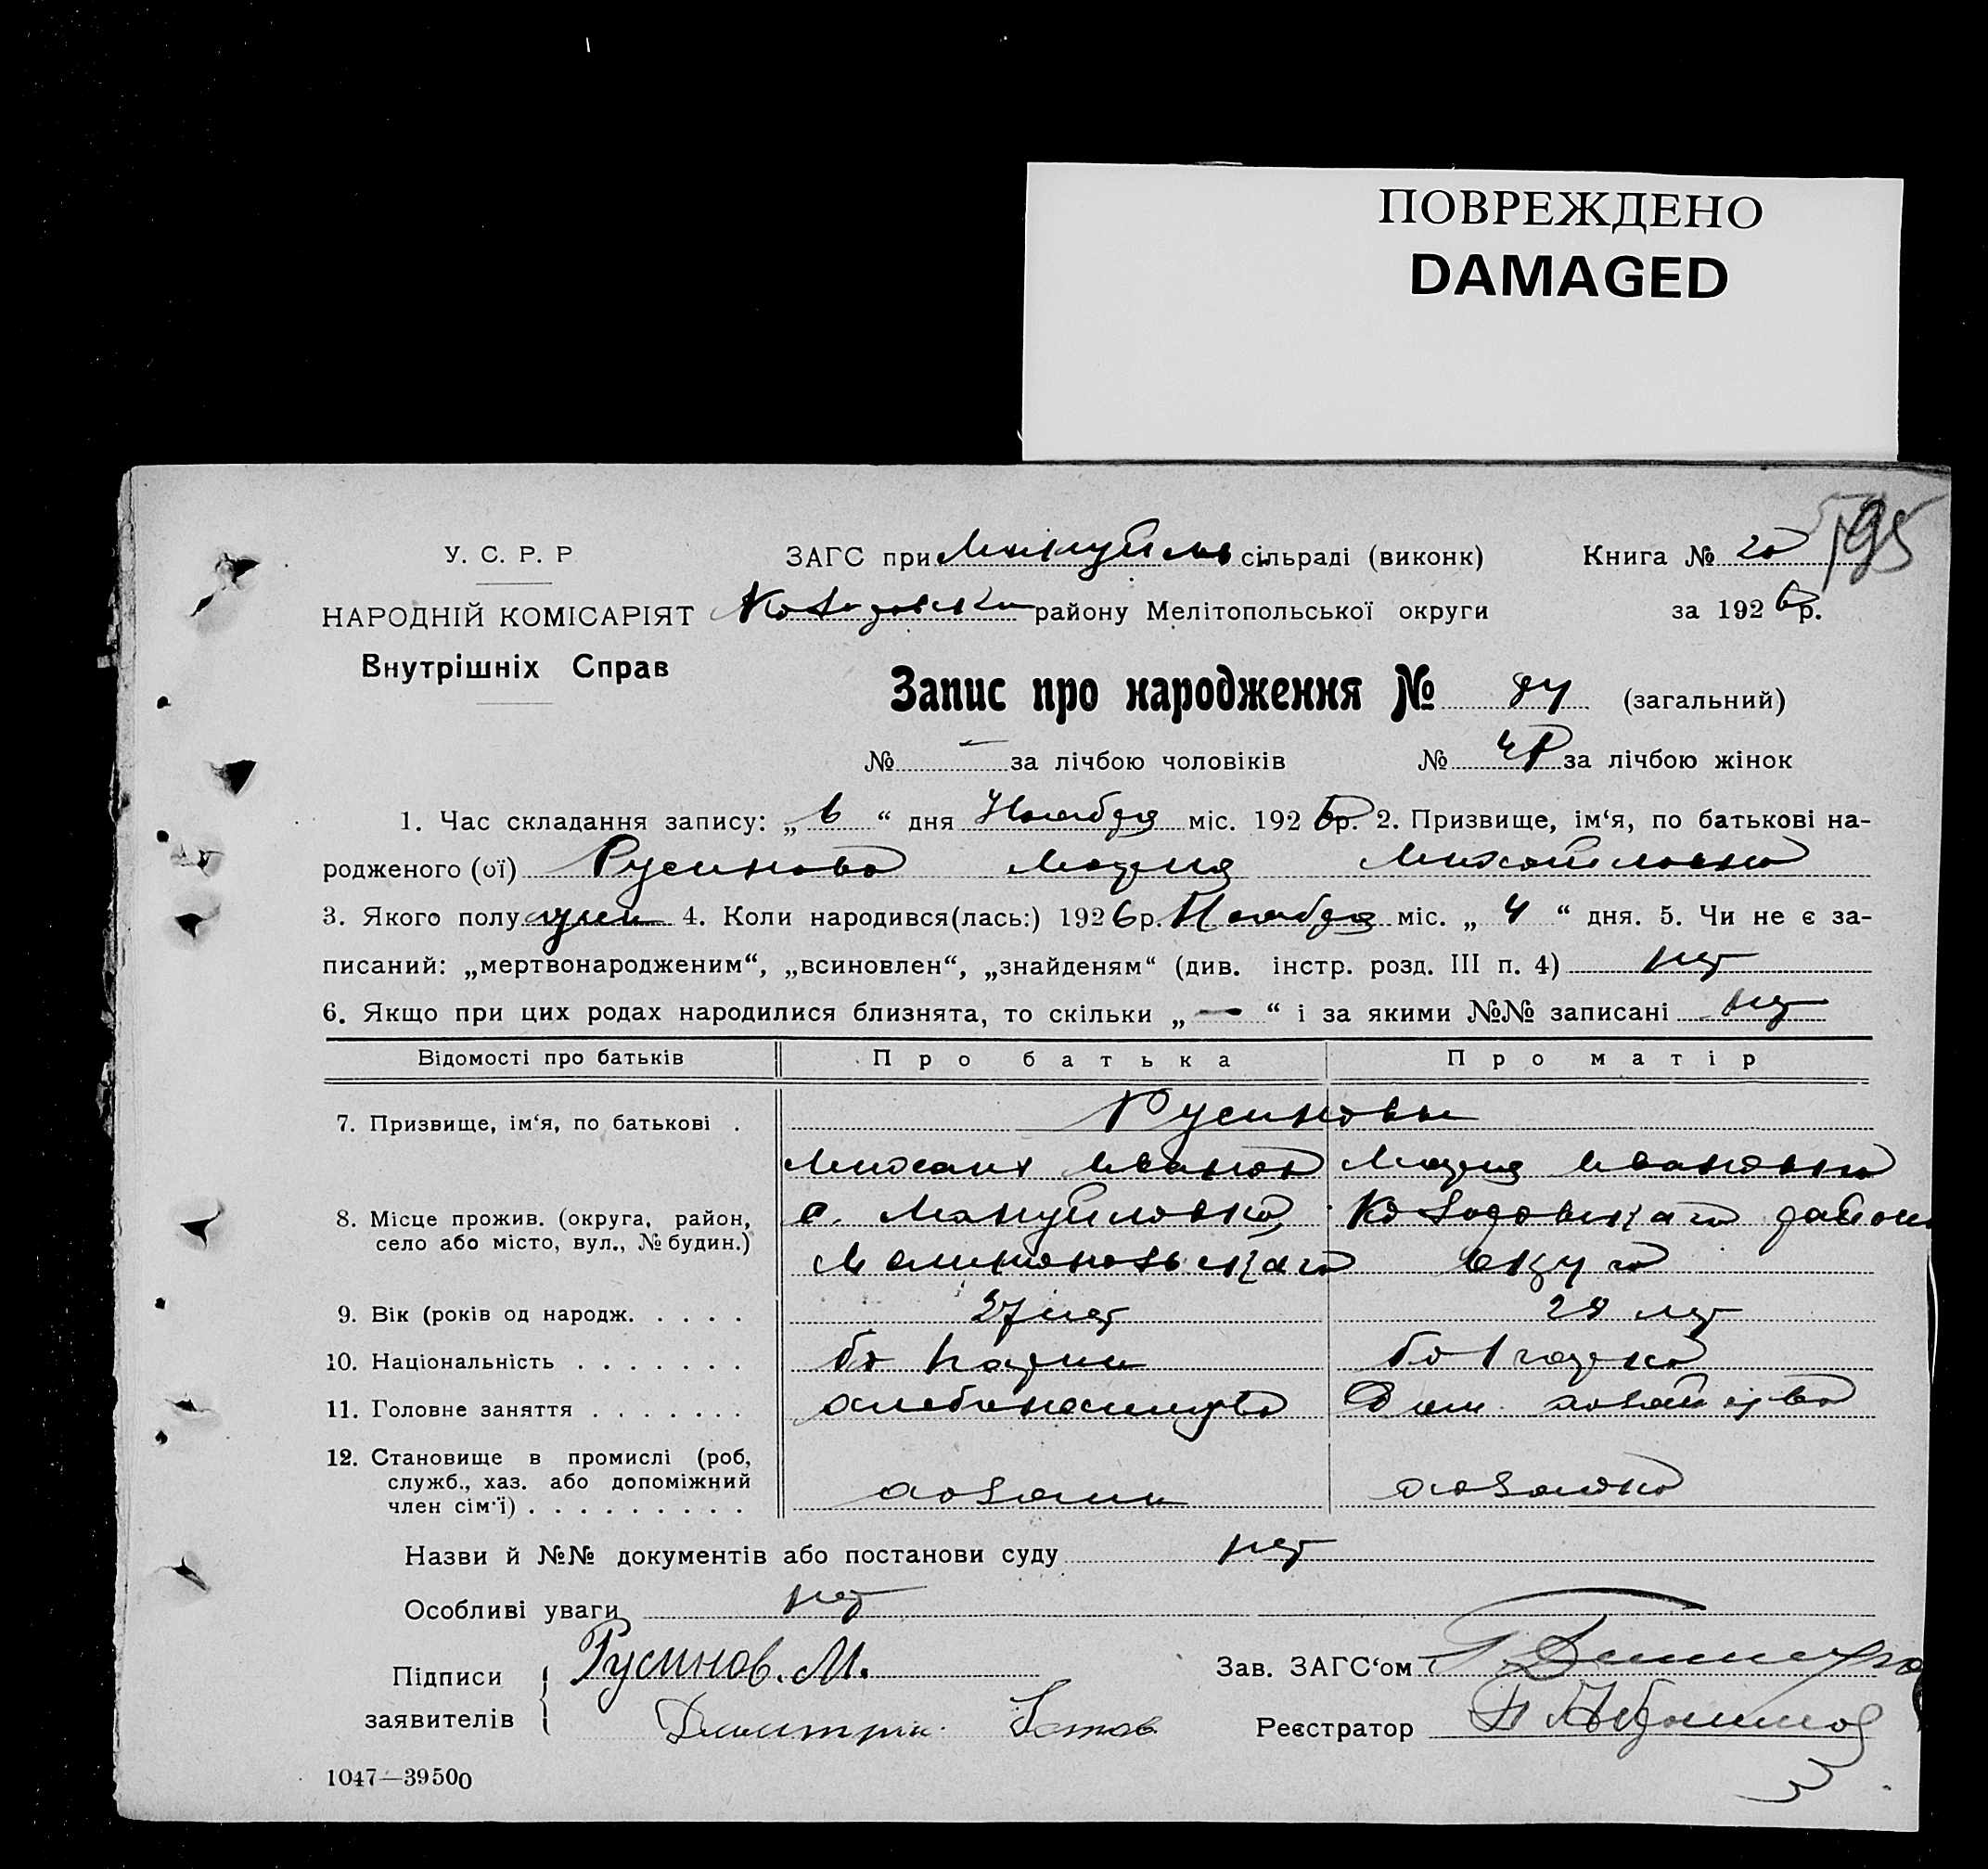 ПОВРЕЖДЕНО
DAMAGED
595
У. С. Р. Р
ЗАГС при Мануйлов сільраді (виконк) Книга № 20
НАРОДНІЙ КОМІСАРІЯТ району Мелітопольської округи за 1926р.
Внутрішніх Справ
Запис про народження № 84 (загальний)
№ — за лічбою чоловіків № за лічбою жінок
1. Час складання запису: „ 6 “ дня Ноября міс. 1926р. 2. Призвище, ім‘я, по батькові на-
родженого (ої) Русинова Мария Михайловна
3. Якого полу жен 4. Коли народився(лась:) 1926р. Ноября міс. „ 4 “ дня. 5. Чи не є за-
писаний: „мертвонародженим“, „всиновлен“, „знайденям“ (див. інстр. розд. III п. 4) нет
6. Якщо при цих родах народилися близнята, то скільки „ — “ і за якими №№ записані нет
Відомості про батьків Про батька Про матір
7. Призвище, ім‘я, по батькові . Русиновы
Михаил Иванов Мария Ивановна
8. Місце прожив. (округа, район, с. Мануйловка, района
село або місто, вул., № будин.) Мелитопольскаго округа
9. Вік (років од народж. . . . . 27 лет 28 лет
10. Національність . . . . . . . болгарин болгарка
11. Головне заняття . . . . . . . хлебопашество Дом. хозяйство
12. Становище в промислі (роб,
служб., хаз. або допоміжний
член сім‘ї) . . . . . . . . . хозяин хозяйка
Назви й №№ документів або постанови суду нет
Особливі уваги нет
Підписи Русинов. М. Зав. ЗАГС‘ом
заявителів Дмитрий Реєстратор
1047—39500